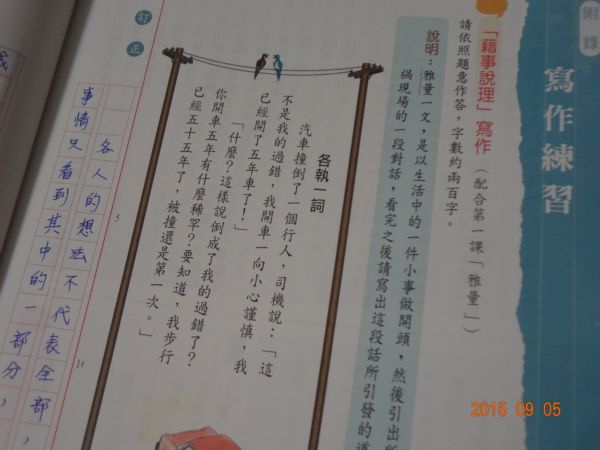 附錄
寫作練習
「藉事說理」寫作（配合第一課「雅量」）
請依照題意作答，字數約兩百字。
說明：雅量一文，是以生活中的一件小事做開頭，然後引出所
禍現場的一段對話，看完之後請寫出這段話所引發的道
各執一詞
汽車撞倒了一個行人，司機說：「這
不是我的過錯，我開車一向小心謹慎，我
已經開了五年車了！」
「什麼？這樣說倒成了我的過錯了？
你開車五年有什麼稀罕？要知道，我步行
已經五十五年了，被撞還是第一次。」
訂正
5
11
各人的想法不代表全部，
事情只看到其中的一部分，
2015 09 05